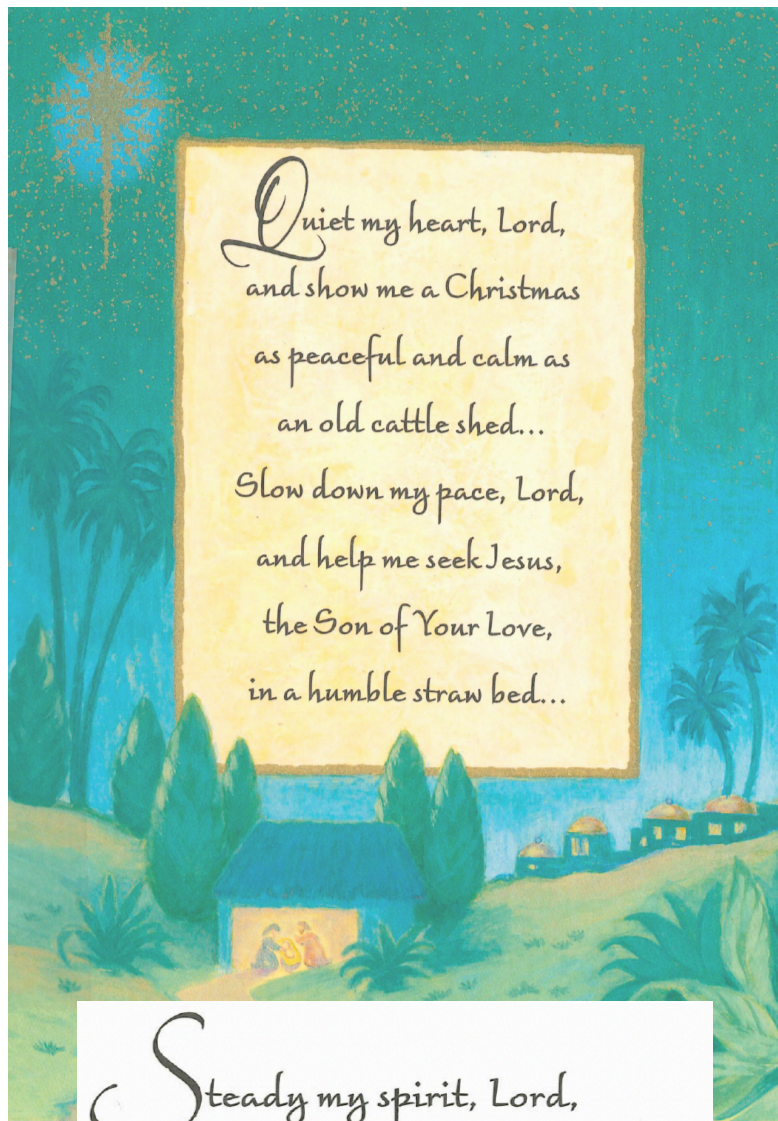 Quiet my heart, Lord,
and show me a Christmas
as peaceful and calm as
an old cattle shed...
Slow down my pace, Lord,
and help me seek Jesus,
the Son of Your Love,
in a humble straw bed...
Steady my spirit, Lord,